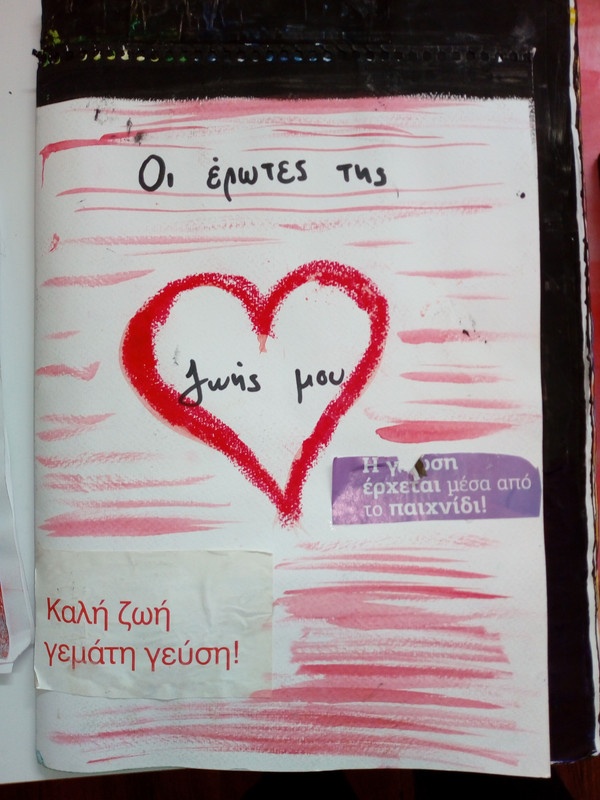 Οι έρωτες της
ζωής μου
Η γνώση
έρχεται μέσα από
το παιχνίδι!
Καλή ζωή
γεμάτη γεύση!